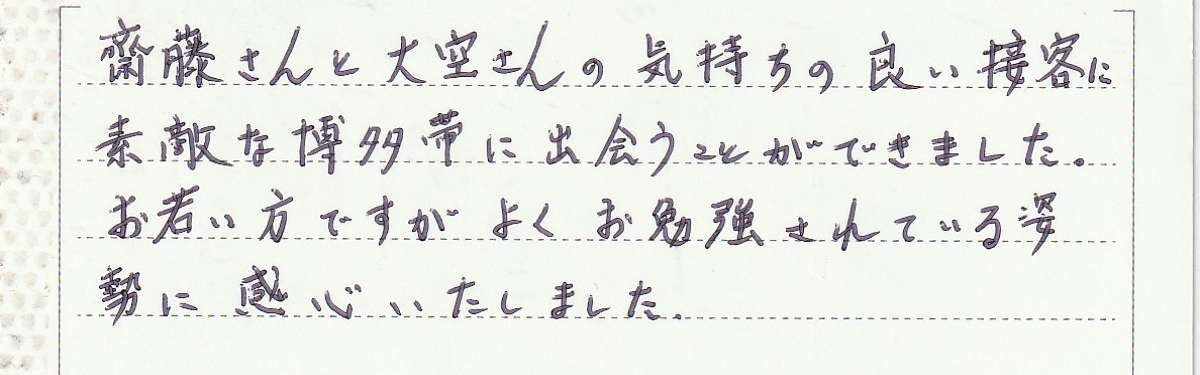 齋藤さんと大空さんの気持ちの良い接客に
素敵な博多帯に出会うことができました。
お若い方ですがよくお勉強されている姿
勢に感心いたしました。